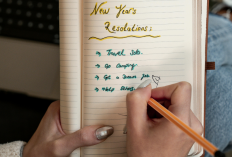 New Year's
Resolutions:
→ Travel Job.
→ Go Camping
→ Get a Dream Job
→ Help